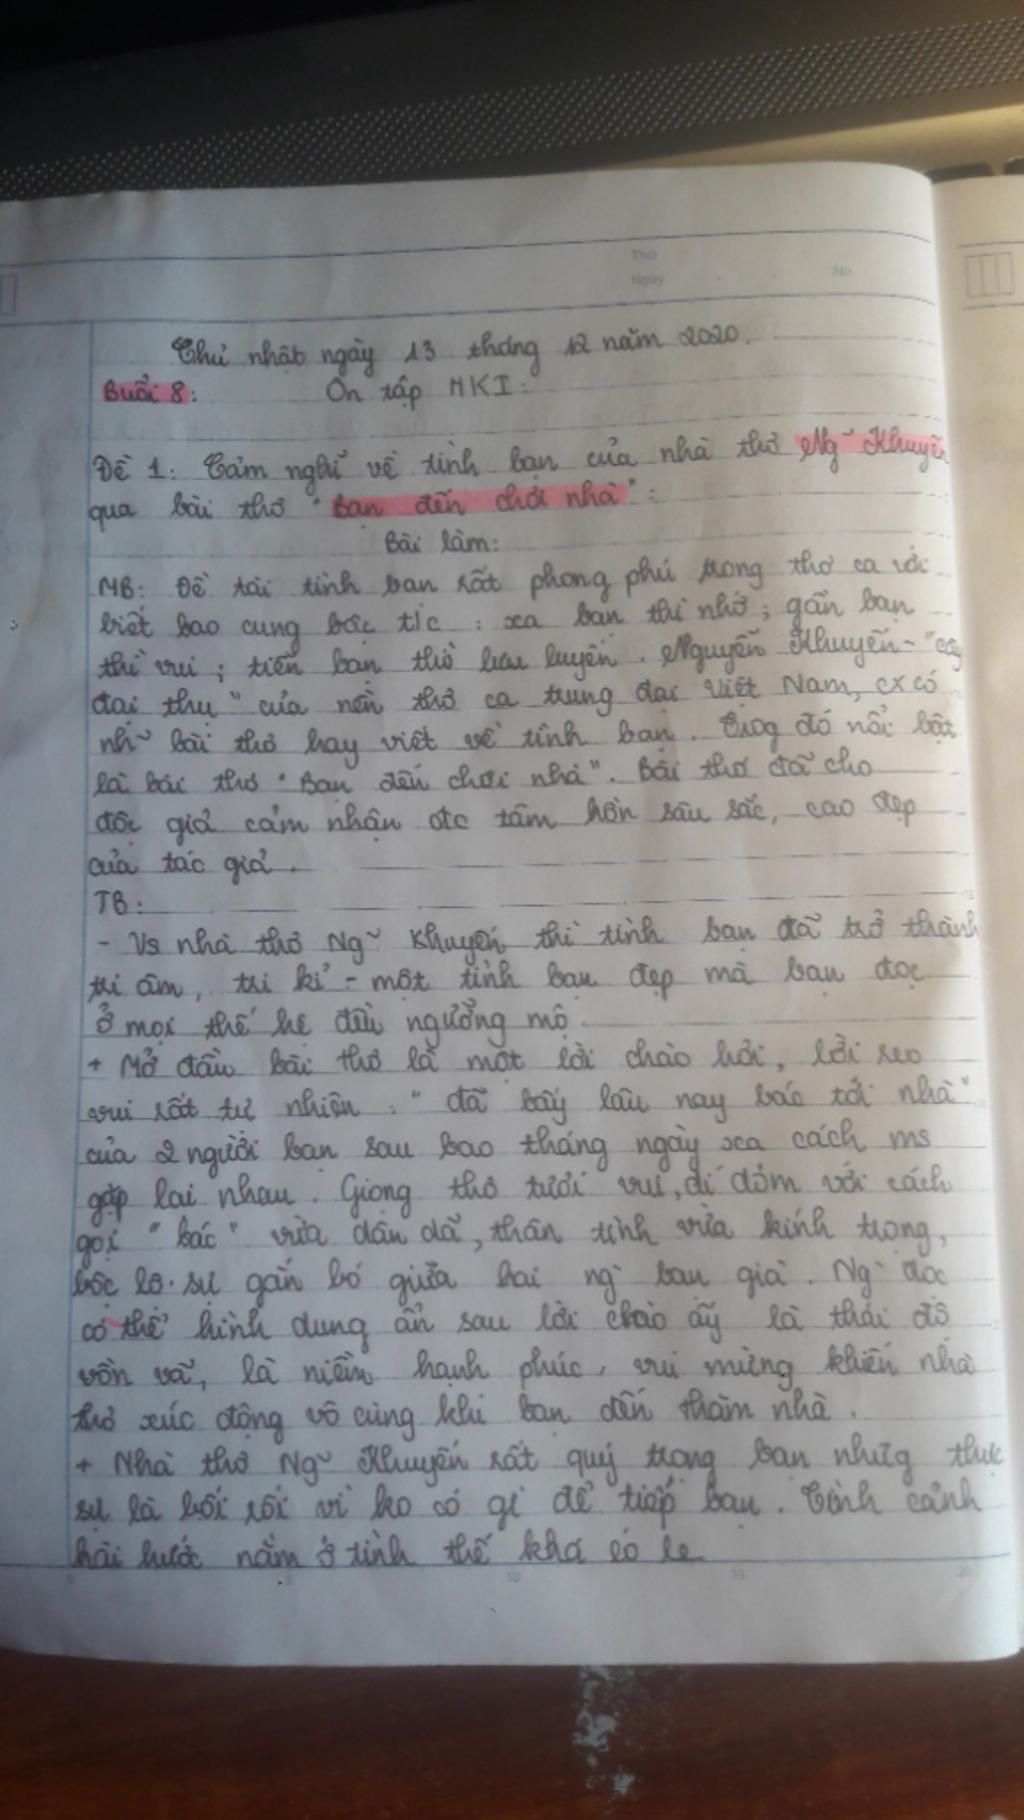 Thứ
Ngày
No.
Chủ nhật ngày 13 tháng 12 năm 2020.
Buổi 8: Ôn tập HKI:
Đề 1: Cảm nghĩ về tình bạn của nhà thơ Ng~ Khuyến
qua bài thơ "Bạn đến chơi nhà":
Bài làm:
MB: Đề tài tình bạn rất phong phú trong thơ ca với
biết bao cung bậc t/c: xa bạn thì nhớ; gần bạn
thì vui; tiễn bạn thì lưu luyến. Nguyễn Khuyến - "cây
đại thụ" của nền thơ ca trung đại Việt Nam, cx có
nh~ bài thơ hay viết về tình bạn. Trog đó nổi bật
là bài thơ "Bạn đến chơi nhà". Bài thơ đã cho
độc giả cảm nhận đc tâm hồn sâu sắc, cao đẹp
của tác giả.
TB:
- Vs nhà thơ Ng~ Khuyến thì tình bạn đã trở thành
tri âm, tri kỉ - một tình bạn đẹp mà bạn đọc
ở mọi thế hệ đều ngưỡng mộ.
+ Mở đầu bài thơ là một lời chào hỏi, lời reo
vui rất tự nhiên: "đã bấy lâu nay bác tới nhà"
của 2 người bạn sau bao tháng ngày xa cách ms
gặp lại nhau. Giọng thơ tươi vui, dí dỏm với cách
gọi "bác" vừa dân dã, thân tình vừa kính trọng,
bộc lộ sự gắn bó giữa hai ng` bạn già. Ng` đọc
có thể hình dung ẩn sau lời chào ấy là thái độ
vồn vã, là niềm hạnh phúc, vui mừng khiến nhà
thơ xúc động vô cùng khi bạn đến thăm nhà.
+ Nhà thơ Ng~ Khuyến rất quý trọng bạn nhưg thực
sự là bối rối vì ko có gì để tiếp bạn. Tình cảnh
hài hước nằm ở tình thế khá éo le
5 10 15 20